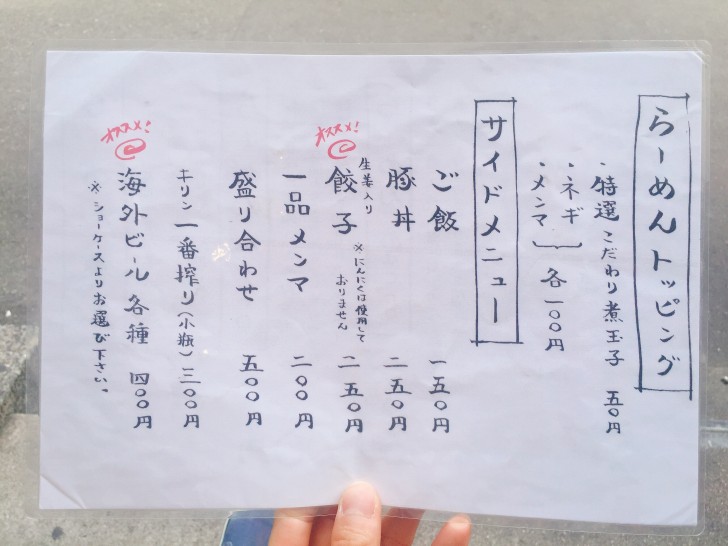 らーめんトッピング
・特選こだわり煮玉子 五〇円
・ネギ
・メンマ
各一〇〇円
サイドメニュー
ご飯 一五〇円
豚丼 二五〇円
オススメ!
生姜入り
餃子 二五〇円
※にんにくは使用して
おりません
一品メンマ 二〇〇円
盛り合わせ 五〇〇円
キリン一番搾り(小瓶)三〇〇円
オススメ!
海外ビール各種 四〇〇円
※ショーケースよりお選び下さい。